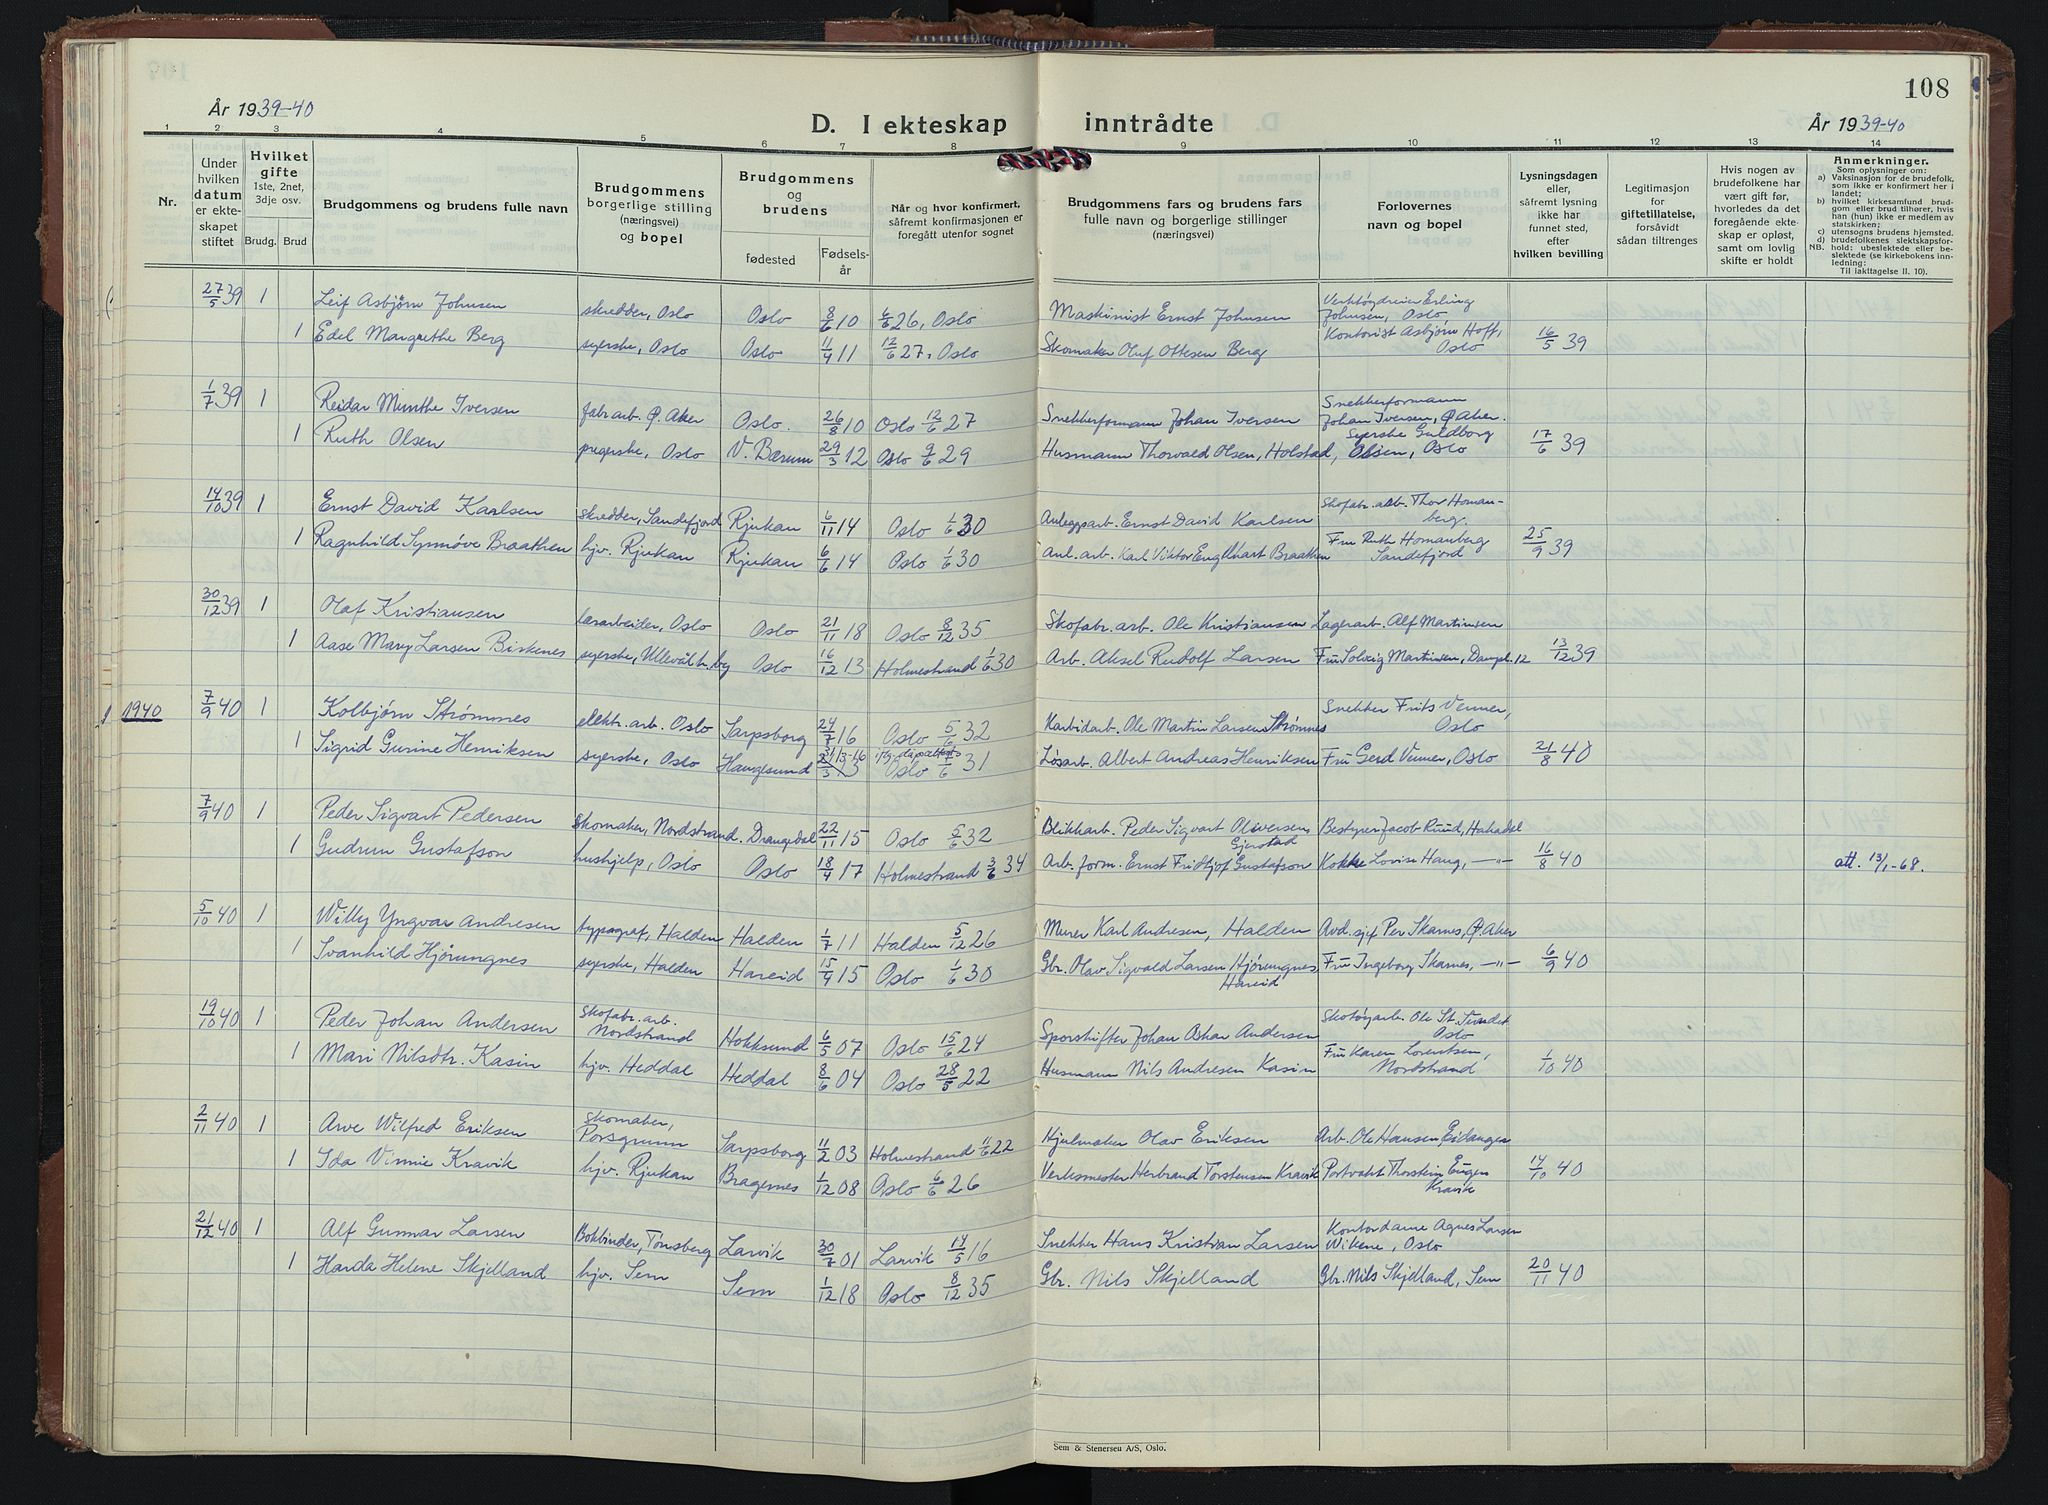 108
År 1939-40
D. I ekteskap inntrådte
År 1939-40
1 2 3 4 5 6 7 8 9 10 11 12 13 14
Nr.
Under hvilken datum er ekteskapet stiftet
Hvilket gifte 1ste, 2net, 3dje osv.
Brudg. Brud
Brudgommens og brudens fulle navn
Brudgommens borgerlige stilling (næringsvei) og bopel
Brudgommens og brudens
fødested
Fødselsår
Når og hvor konfirmert, såfremt konfirmasjonen er foregått utenfor sognet
Brudgommens fars og brudens fars fulle navn og borgerlige stillinger (næringsvei)
Forlovernes navn og bopel
Lysningsdagen eller, såfremt lysning ikke har funnet sted, efter hvilken bevilling
Legitimasjon for giftetillatelse, forsåvidt sådan tiltrenges
Hvis nogen av brudefolkene har vært gift før, hvorledes da det foregående ekteskap er opløst, samt om lovlig skifte er holdt
Anmerkninger.
Som oplysninger om:
a) Vaksinasjon for de brudefolk, som ikke er konfirmert her i landet;
b) hvilket kirkesamfund brudgom eller brud tilhører, hvis han (hun) ikke er medlem av statskirken;
c) utensogns brudens hjemsted.
d) brudefolkenes slektskapsforhold: ubeslektede eller beslektede (se kirkebokens innledning:
NB. Til iakttagelse II. 10).
27/5 39 1 Leif Asbjørn Johnsen skredder, Oslo Oslo 8/6 10 6/6 26, Oslo Maskinist Ernst Johnsen Verktøydreier Erling Johnsen, Oslo
1 Edel Margrethe Berg syerske, Oslo Oslo 11/4 11 12/6 27, Oslo Skomaker Oluf Ottesen Berg Kontorist Asbjørn Hoff, Oslo 16/5 39
1/7 39 1 Reidar Munthe Iversen fabr.arb. Ø. Aker Oslo. 26/8 10 Oslo 12/6 27 Snekkerformann Johan Iversen Snekkerformann Johan Iversen, Ø Aker.
1 Ruth Olsen pregerske, Oslo V. Bærum 29/3 12 Oslo 9/6 29 Husmann Thorvald Olsen, Holstad, Syerske Guldborg Olsen, Oslo 17/6 39
14/10 39 1 Ernst David Kaalsen skredder, Sandefjord Rjukan 6/11 14 Oslo 1/6 30 Anleggsarb. Ernst David Karlsen Skofabr. arb. Thor Homanberg.
1 Ragnhild Synnøve Braathen hjv. Rjukan Rjukan 6/6 14 Oslo 1/6 30 Anl. arb. Karl Viktor Englhart Braathen Fru Ruth Homanberg Sandefjord 25/9 39
30/12 39 1 Olaf Kristiansen lærarbeider, Oslo Oslo 21/11 18 Oslo 8/12 35 Skofabr. arb. Ole Kristiansen Lagerarb. Alf Martinsen
1 Aase Mary Larsen Biskenes syerske, Ullevål h.by Oslo 16/12 13 Holmestrand 1/6 30 Arb. Aksel Rudolf Larsen Fru Solveig Martinsen, Dampl. 12 13/12 39
1940 7/9 40 1 Kolbjørn Strømmes elektr. arb. Oslo Sarpsborg 24/7 16 Oslo 5/6 32 Karbidarb. Ole Martin Larsen Strømnes Snekker Frits Venner, Oslo
1 Sigrid Gurine Henriksen syerske, Oslo Haugesund 31/3-16 Oslo 7/6 31 Løsarb. Albert Andreas Henriksen Fru Gerd Venner, Oslo 21/8 40
7/9 40 1 Peder Sigvart Pedersen skomaker, Nordstrand. Drangedal 22/11 15 Oslo 5/6 32 Blikkarb. Peder Sigvart Oliversen Gjerstad Bestyrer Jacob Ruud, Hakadal
1 Gudrun Gustafson hushjelp, Oslo Oslo 18/4 17 Holmestrand 3/6 34 Arb. form. Ernst Fridthjof Gustafson Kokke Lovise Haug, —"— 16/8 40 att. 13/1-68.
5/10 40 1 Willy Yngvar Andresen typograf, Halden Halden 1/7 11 Halden 5/12 26 Murer Karl Andresen, Halden Avd. sjef Per Skarnes, Ø. Aker
1 Svanhild Hjørungnes syerske, Halden Hareid 15/4 15 Oslo 1/6 30 Gbr. Olav Sigvald Larsen Hjørungnes Hareid Fru Ingeborg Skarnes, —"— 6/9 40
19/10 40 1 Peder Johan Andersen Skofabr. arb. Nordstrand Hokksund 6/5 07 Oslo 15/6 24 Sporskifter Johan Oskar Andersen Skotøyarb. Ole St. Sundet Oslo
1 Mari Nilsdtr. Kasin hjv. Heddal Heddal 8/6 04 Oslo 28/5 22 Husmann Nils Andresen Kasin Fru Karen Lorentsen, Nordstrand 1/10 40
2/11 40 1 Arve Wilfred Eriksen skomaker, Porsgrunn Sarpsborg 11/2 03 Holmestrand 11/6 22 Hjulmaker Olav Eriksen Arb. Ole Hansen, Eidanger
1 Ida Vinnie Kravik hjv. Rjukan Bragernes 1/12 08 Oslo 6/6 26 Verksmester Herbrand Torstensen Kravik Portvakt Thorstein Eugen Kravik 14/10 40
21/12 40 1 Alf Gunnar Larsen Bokbinder, Tønsberg Larvik 30/7 01 Larvik 14/5 16 Snekker Hans Kristian Larsen Kontordame Agnes Larsen Wikene, Oslo
1 Harda Helene Skjelland hjv. Sem Sem 1/12 18 Oslo 8/12 35 Gbr. Nils Skjelland Gbr. Nils Skjelland, Sem 20/11 40
Sem & Stenersen A/S, Oslo.